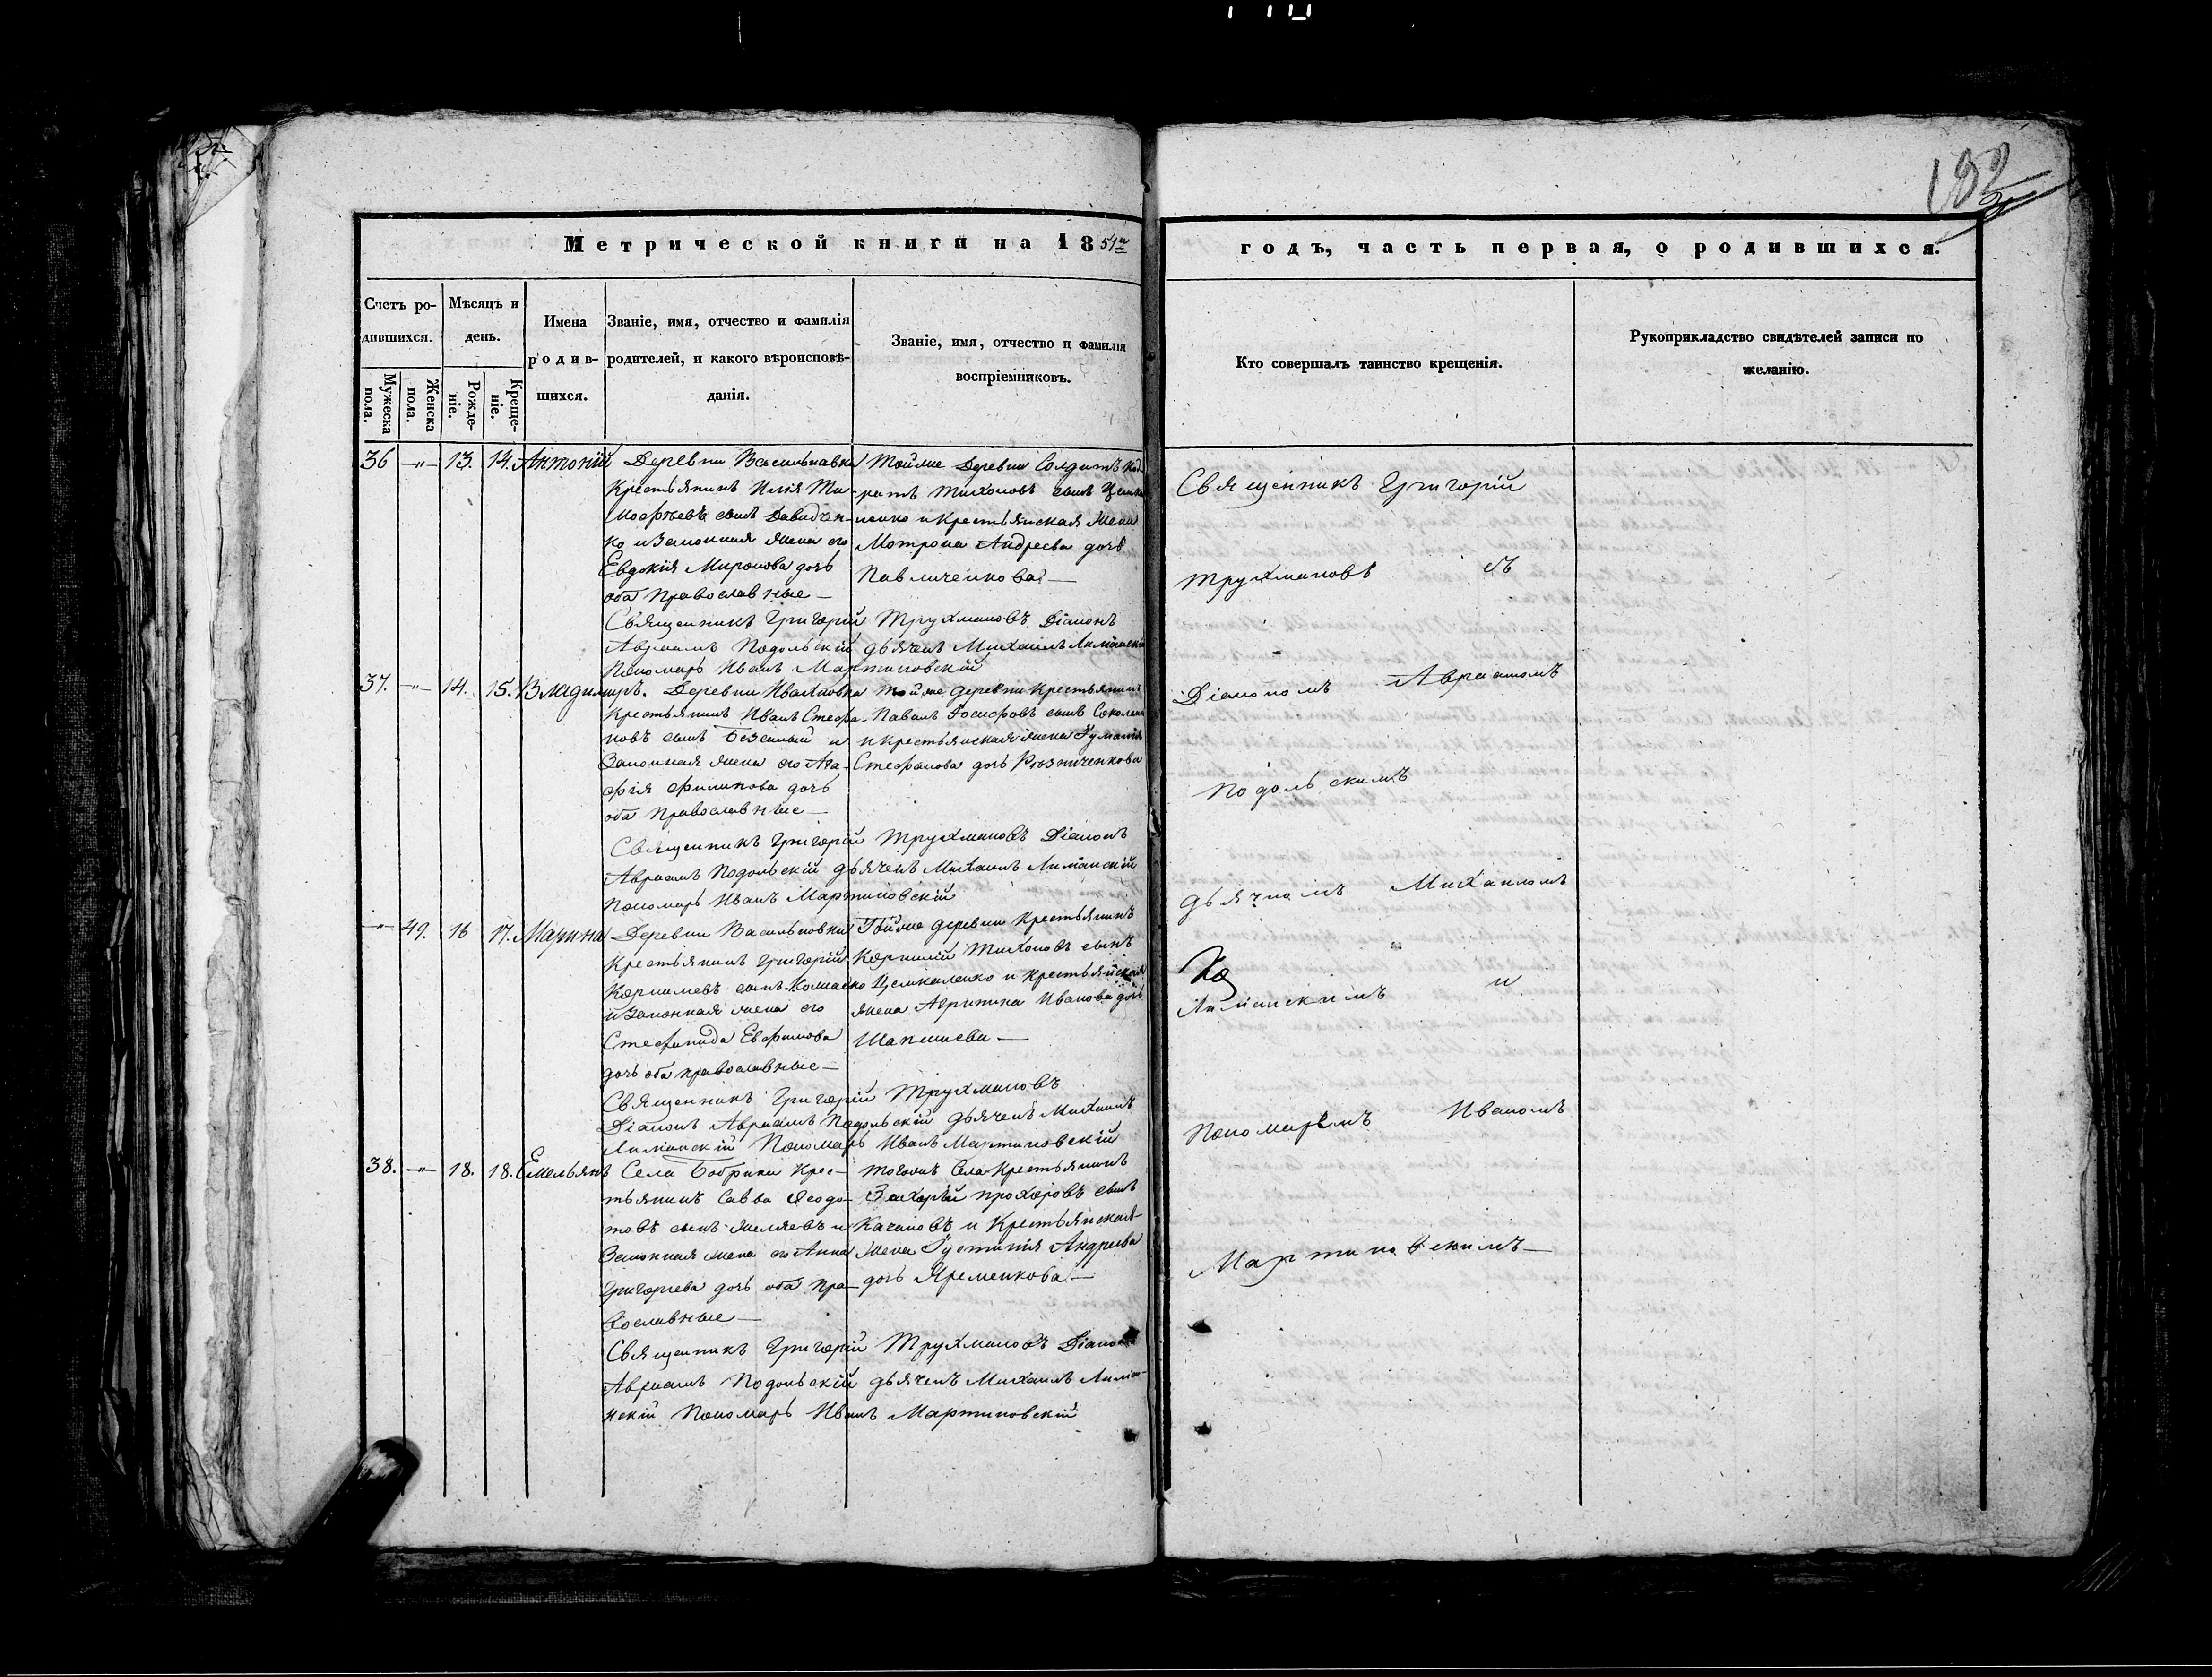 Метрической книги на 1851й
годъ, часть первая, о родившихся.
Счетъ родившихся.
Мужеска пола.
Женска пола.
Мѣсяцъ и день.
Рожденіе.
Крещеніе.
Имена родившихся.
Званіе, имя, отчество и фамилія
родителей, и какого вѣроисповѣданія.
Званіе, имя, отчество и фамилія
воспріемниковъ.
Кто совершалъ таинство крещенія.
Рукоприкладство свидѣтелей записи по
желанію.
36 —„— 13. 14. Антоній
Деревни Васильковка
Крестьянинъ Илія Ти-
мофѣевъ сынъ Давиден-
ко и Законная жена его
Евдокія Миронова дочь
оба Православные —
Тойже Деревни Солдатъ
Тихоновъ сынъ
и Крестьянская Жена
Мотрона Андреева дочь
Павличенкова —
Священникъ Григорій Трухмановъ Діаконъ
Авраамъ Подольскій дьячекъ Михаилъ Лиманскій
Пономарь Иванъ Мартиновскій
37. —„— 14. 15. Владимиръ.
Деревни Ивахновка
Крестьянинъ Иванъ Стефа-
новъ сынъ и
Законная жена его Ага-
фія Филипова дочь
оба Православные —
Тойже деревни Крестьянинъ
Павелъ Іосифовъ сынъ
и Крестьянская жена
Стефанова дочь
Священникъ Григорій Трухмановъ Діаконъ
Авраамъ Подольскій дьячекъ Михаилъ Лиманскій
Пономарь Иванъ Мартиновскій
—„— 49. 16 17. Марина
Деревни Васильковки
Крестьянинъ Григорій
Корнилевъ сынъ
и Законная жена его
Стефанида Евфимова
дочь оба православные —
Тойже деревни Крестьянинъ
Корнилій Тихоновъ сынъ
и Крестьянская
жена Агрипина Иванова дочь
Священникъ Григорій Трухмановъ
Діаконъ Авраамъ Подольскій дьячекъ Михаилъ
Лиманскій Пономарь Иванъ Мартиновскій
38. —„— 18. 18. Емельянъ
Села Бобрики Крес-
тьянинъ Савва Ѳеодо-
товъ сынъ и
Законная жена его Анна
Григорьева дочь оба пра-
вославные —
Тогожъ Села Крестьянинъ
Захарій Прохоровъ сынъ
Качановъ и Крестьянская
жена Іустинія Андреева
дочь Яременкова —
Священникъ Григорій Трухмановъ Діаконъ
Авраамъ Подольскій дьячекъ Михаилъ Лима-
нскій Пономарь Иванъ Мартиновскій
Священникъ Григорій
Трухмановъ съ
Діакономъ Авраамомъ
Подольскимъ
дьячкомъ Михаиломъ
Лиманскимъ и
Пономаремъ Иваномъ
Мартиновскимъ —